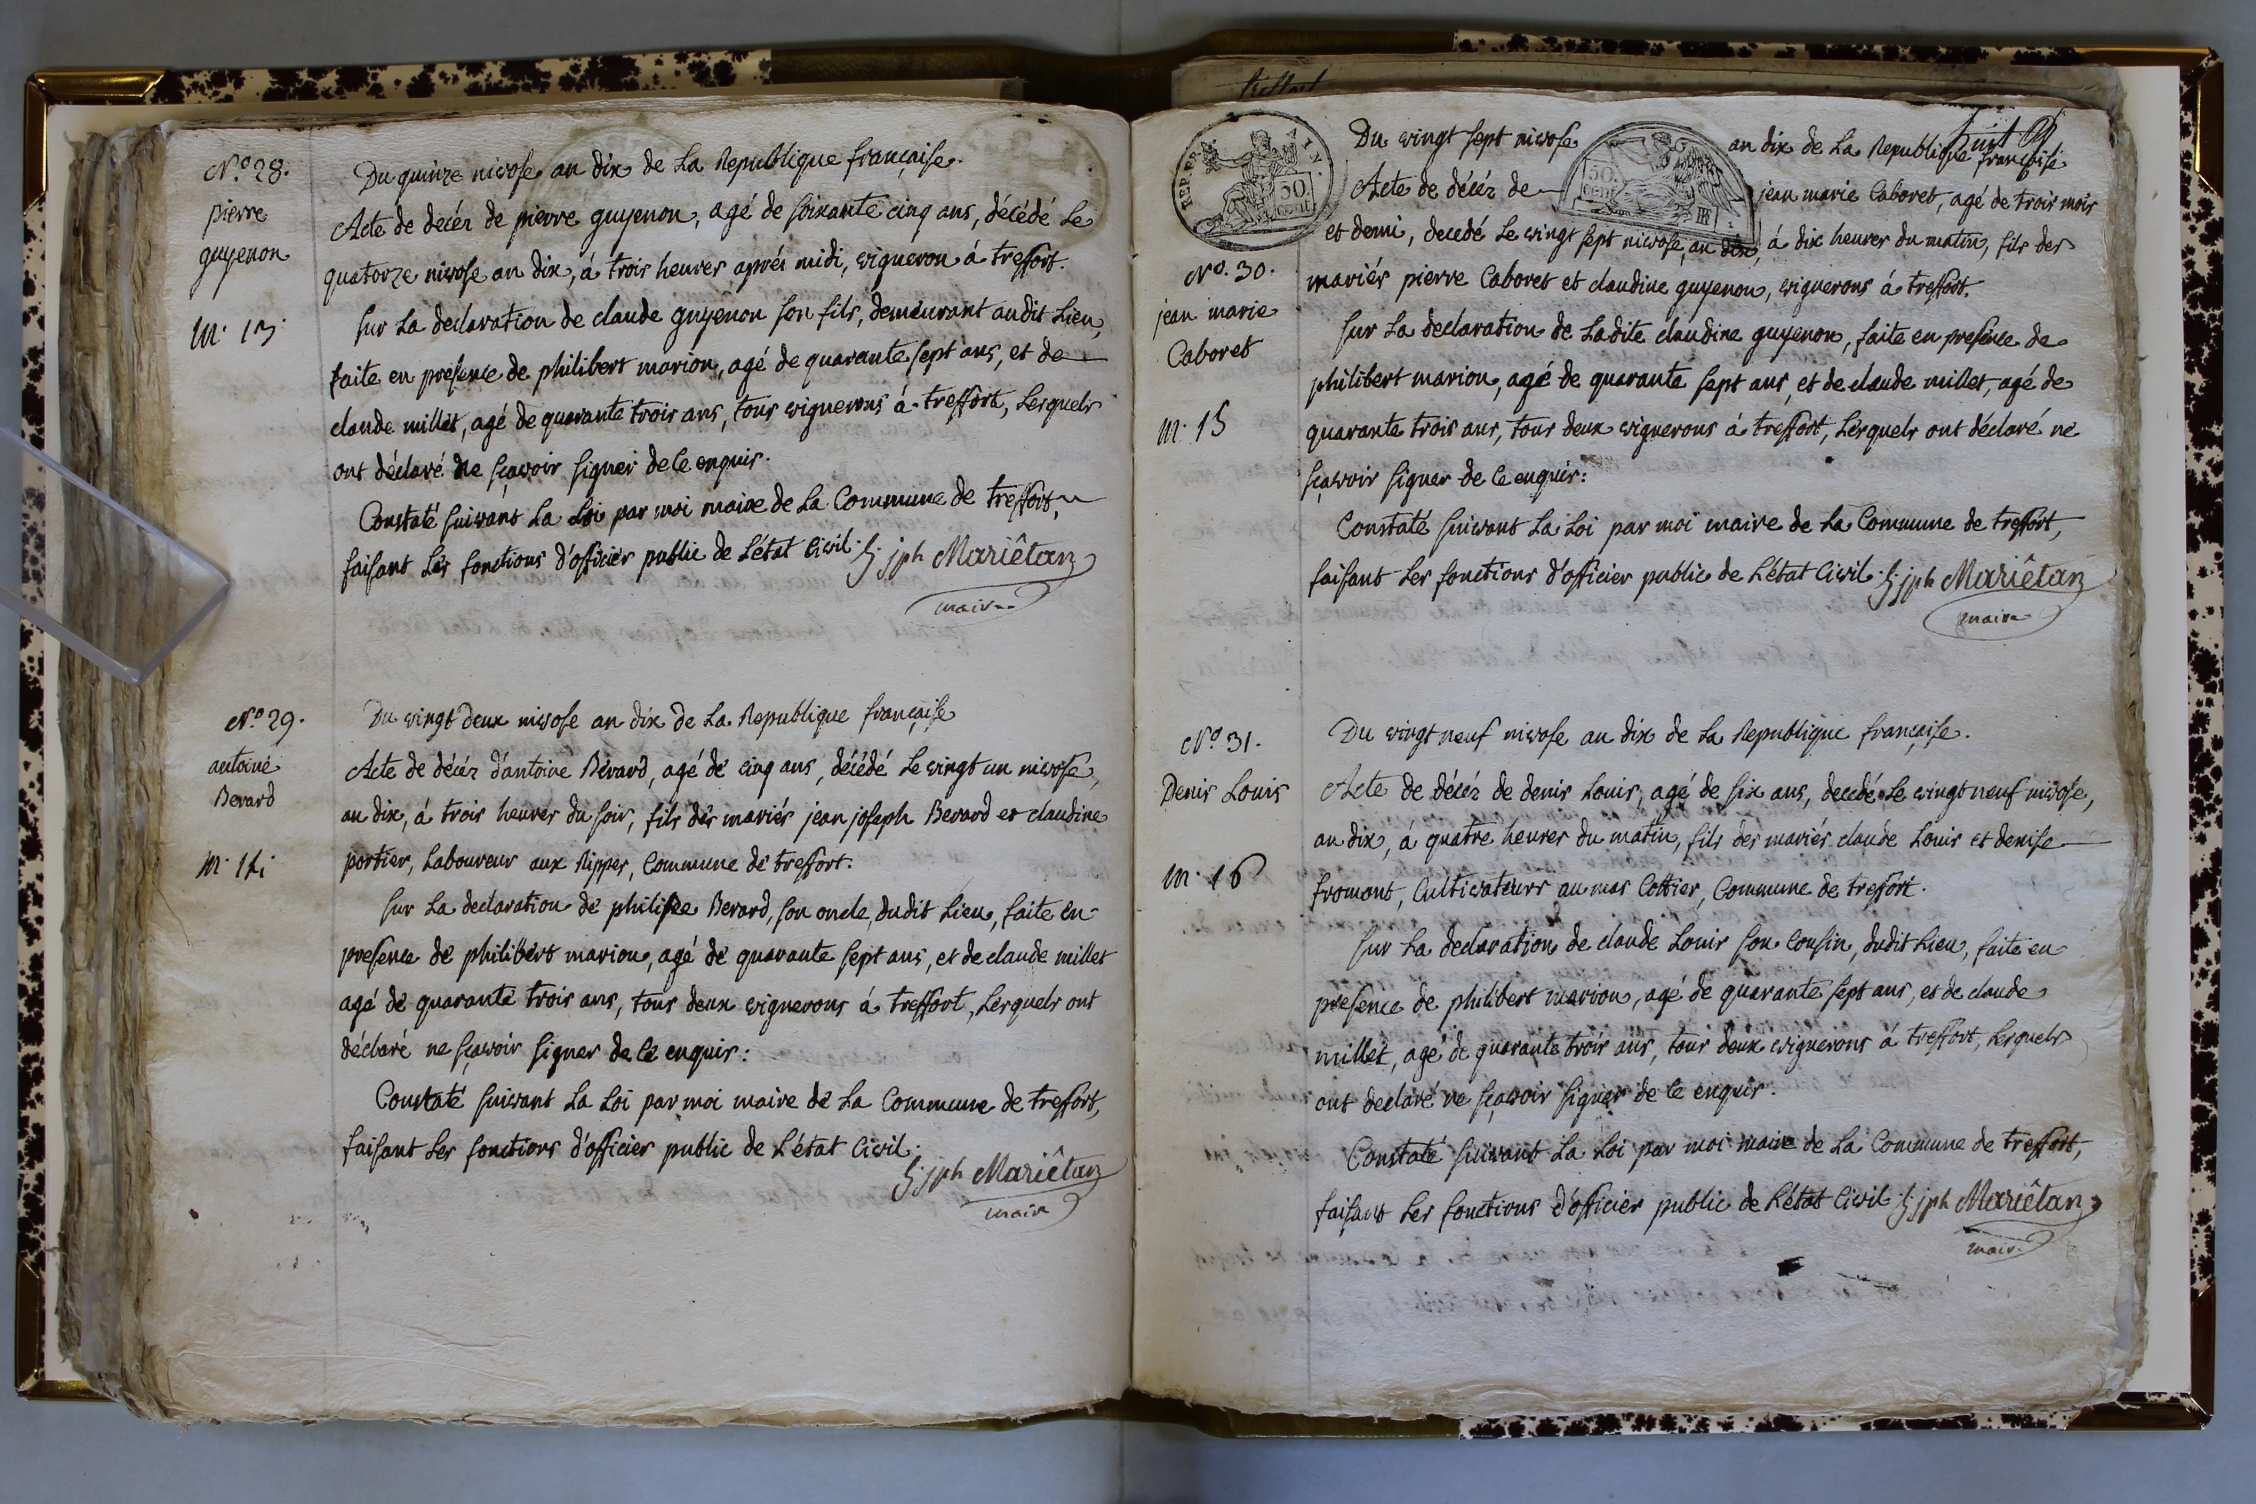 N.º 28.
pierre
guyenon
m. 13.
Du quinze nivose an dix de La Republique française.
Acte de décéz de pierre guyenon, agé de soixante cinq ans, décédé Le
quatorze nivose an dix, á trois heures aprés midi, vigneron á treffort.
Sur La declaration de claude guyenon son fils, demeurant audit Lieu,
faite en presence de philibert marion, agé de quarante sept ans, et de
claude millet, agé de quarante trois ans, tous vignerons á treffort, Lesquels
ont déclaré ne sçavoir signer de ce enquis.
Constaté suivant La Loi par moi maire de La Commune de treffort,
faisant Les fonctions d'officier public de L'état Civil. jph Mariêtan
maire
N.º 29.
antoine
Berard
m. 14.
Du vingt deux nivose an dix de La Republique française
Acte de décéz d'antoine Bérard, agé de cinq ans, décédé Le vingt un nivose,
an dix, á trois heures du soir, fils des mariés jean joseph Berard et claudine
portier, Laboureur aux Rippes, Commune de treffort.
Sur La declaration de philippe Berard, son oncle, dudit Lieu, faite en
presence de philibert marion, agé de quarante sept ans, et de claude millet
agé de quarante trois ans, tous deux vignerons á treffort, Lesquels ont
déclaré ne sçavoir signer de ce enquis:
Constaté suivant La Loi par moi maire de La Commune de treffort,
faisant Les fonctions d'officier public de L'état Civil.
jph Mariêtan
maire
treffort
huit
REP. FRA.
AIN.
50.
CENT
50.
CENT
N.º 30.
jean marie
Caboret
m. 15
Du vingt sept nivose an dix de La Republique française
Acte de décéz de jean marie Caboret, agé de trois mois
et demi, decedé Le vingt sept nivose, an dix, á dix heures du matin, fils des
mariés pierre Caboret et claudine guyenon, vignerons á treffort.
Sur La declaration de Ladite claudine guyenon, faite en presence de
philibert marion, agé de quarante sept ans, et de claude millet, agé de
quarante trois ans, tous deux vignerons á treffort, Lesquels ont déclaré ne
sçavoir signer de ce enquis:
Constaté suivant La Loi par moi maire de La Commune de treffort,
faisant Les fonctions d'officier public de L'état Civil. jph Mariêtan
maire
N.º 31.
Denis Louis
m. 16
Du vingt neuf nivose an dix de La Republique française.
Acte de décéz de denis Louis, agé de six ans, decedé Le vingt neuf nivose,
an dix, á quatre heures du matin, fils des mariés claude Louis et denise
fromont, Cultivateurs au mas Cottier, Commune de treffort.
Sur La declaration de claude Louis son cousin, dudit Lieu, faite en
presence de philibert marion, agé de quarante sept ans, et de claude
millet, agé de quarante trois ans, tous deux vignerons á treffort, Lesquels
ont declaré ne sçavoir signer de ce enquis.
Constaté suivant La Loi par moi maire de La Commune de treffort,
faisant Les fonctions d'officier public de L'état Civil. jph Mariêtan
maire